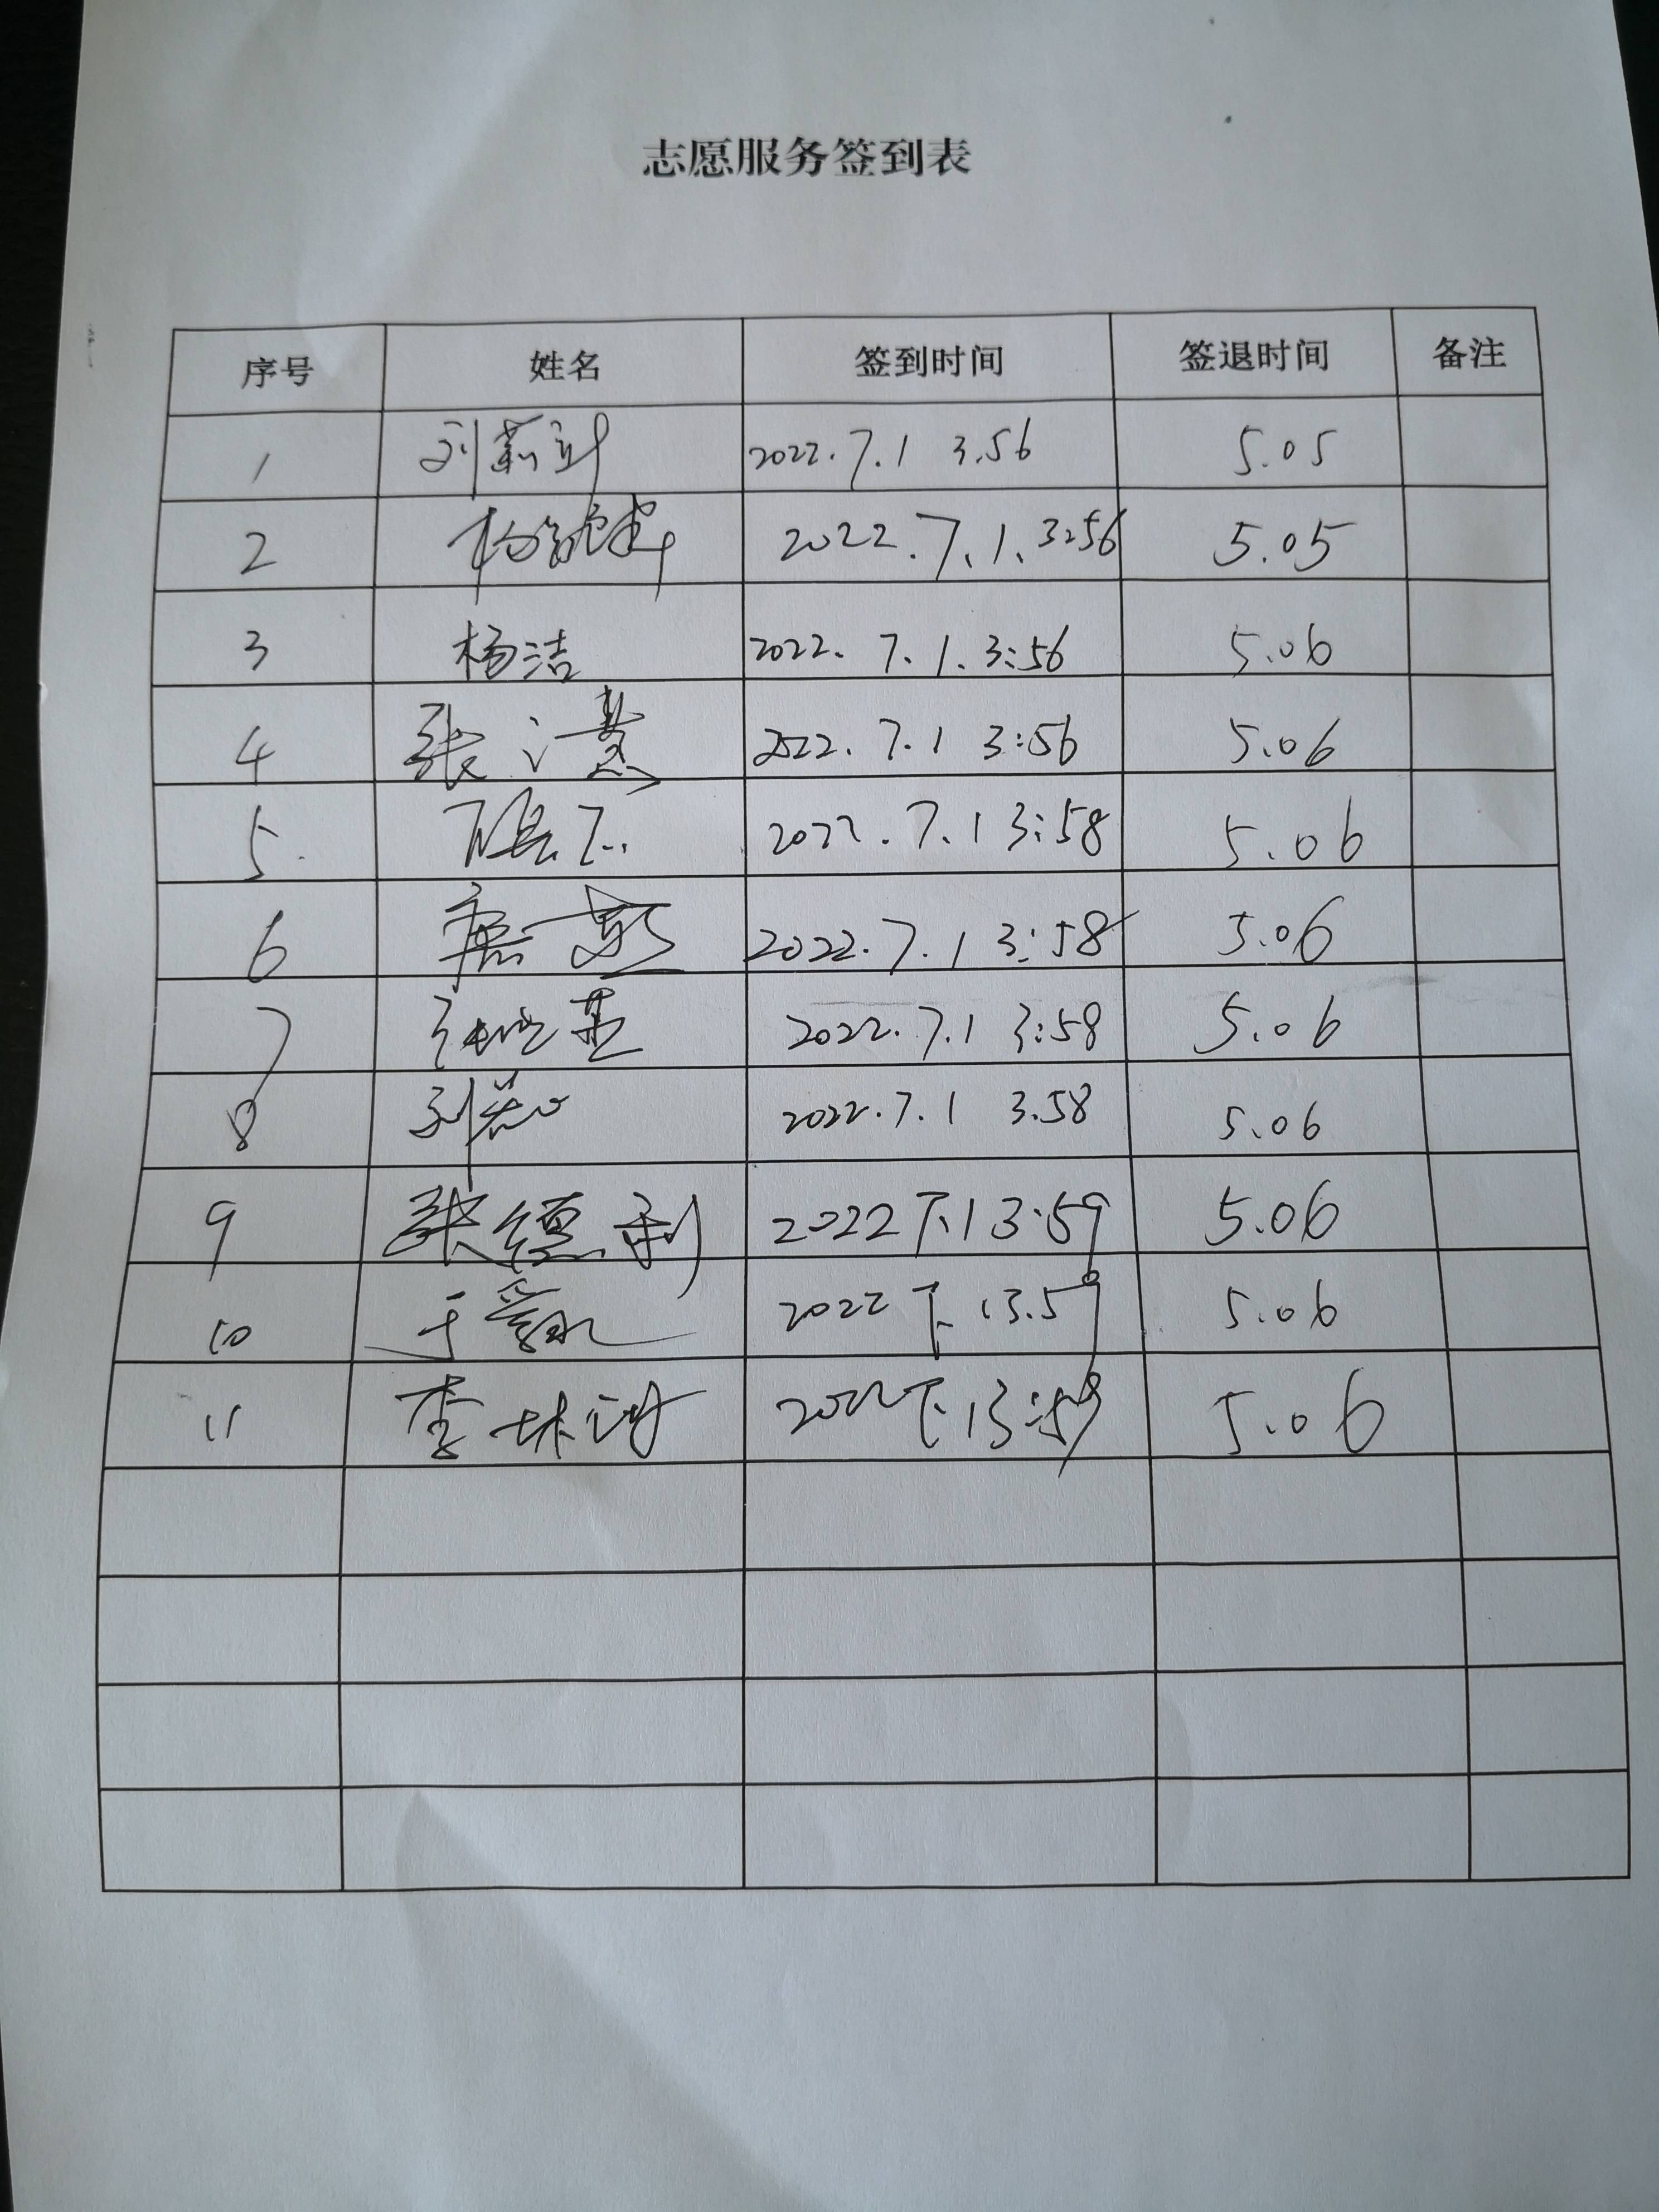 志愿服务签到表
序号 姓名 签到时间 签退时间 备注
1 2022.7.1 3.56 5.05
2 2022.7.1.3:56 5.05
3 杨洁 2022.7.1.3:56 5.06
4 张 2022.7.1 3:56 5.06
5 2022.7.1 3:58 5.06
6 2022.7.1 3:58 5.06
7 2022.7.1 3:58 5.06
8 2022.7.1 3.58 5.06
9 张德利 2022 下.1 3:59 5.06
10 于 2022 下.13.59 5.06
11 李林 2022 下.13:59 5.06